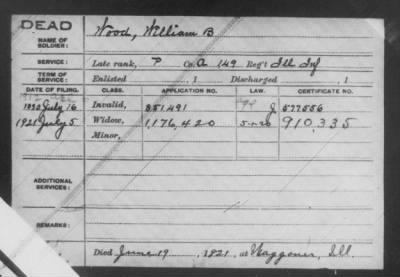 DEAD
NAME OF SOLDIER: Wood, William B
SERVICE: Late rank, P Co. A 149 Reg't Ill Inf
TERM OF SERVICE: Enlisted , 1 Discharged , 1
DATE OF FILING. CLASS. APPLICATION NO. LAW. CERTIFICATE NO.
1892 July 16 Invalid, 851491 J 577556
1921 July 5 Widow, 1,176,420 5-1-20 910,335
Minor,
ADDITIONAL SERVICES:
REMARKS:
Died June 19, 1921, at Waggoner, Ill.